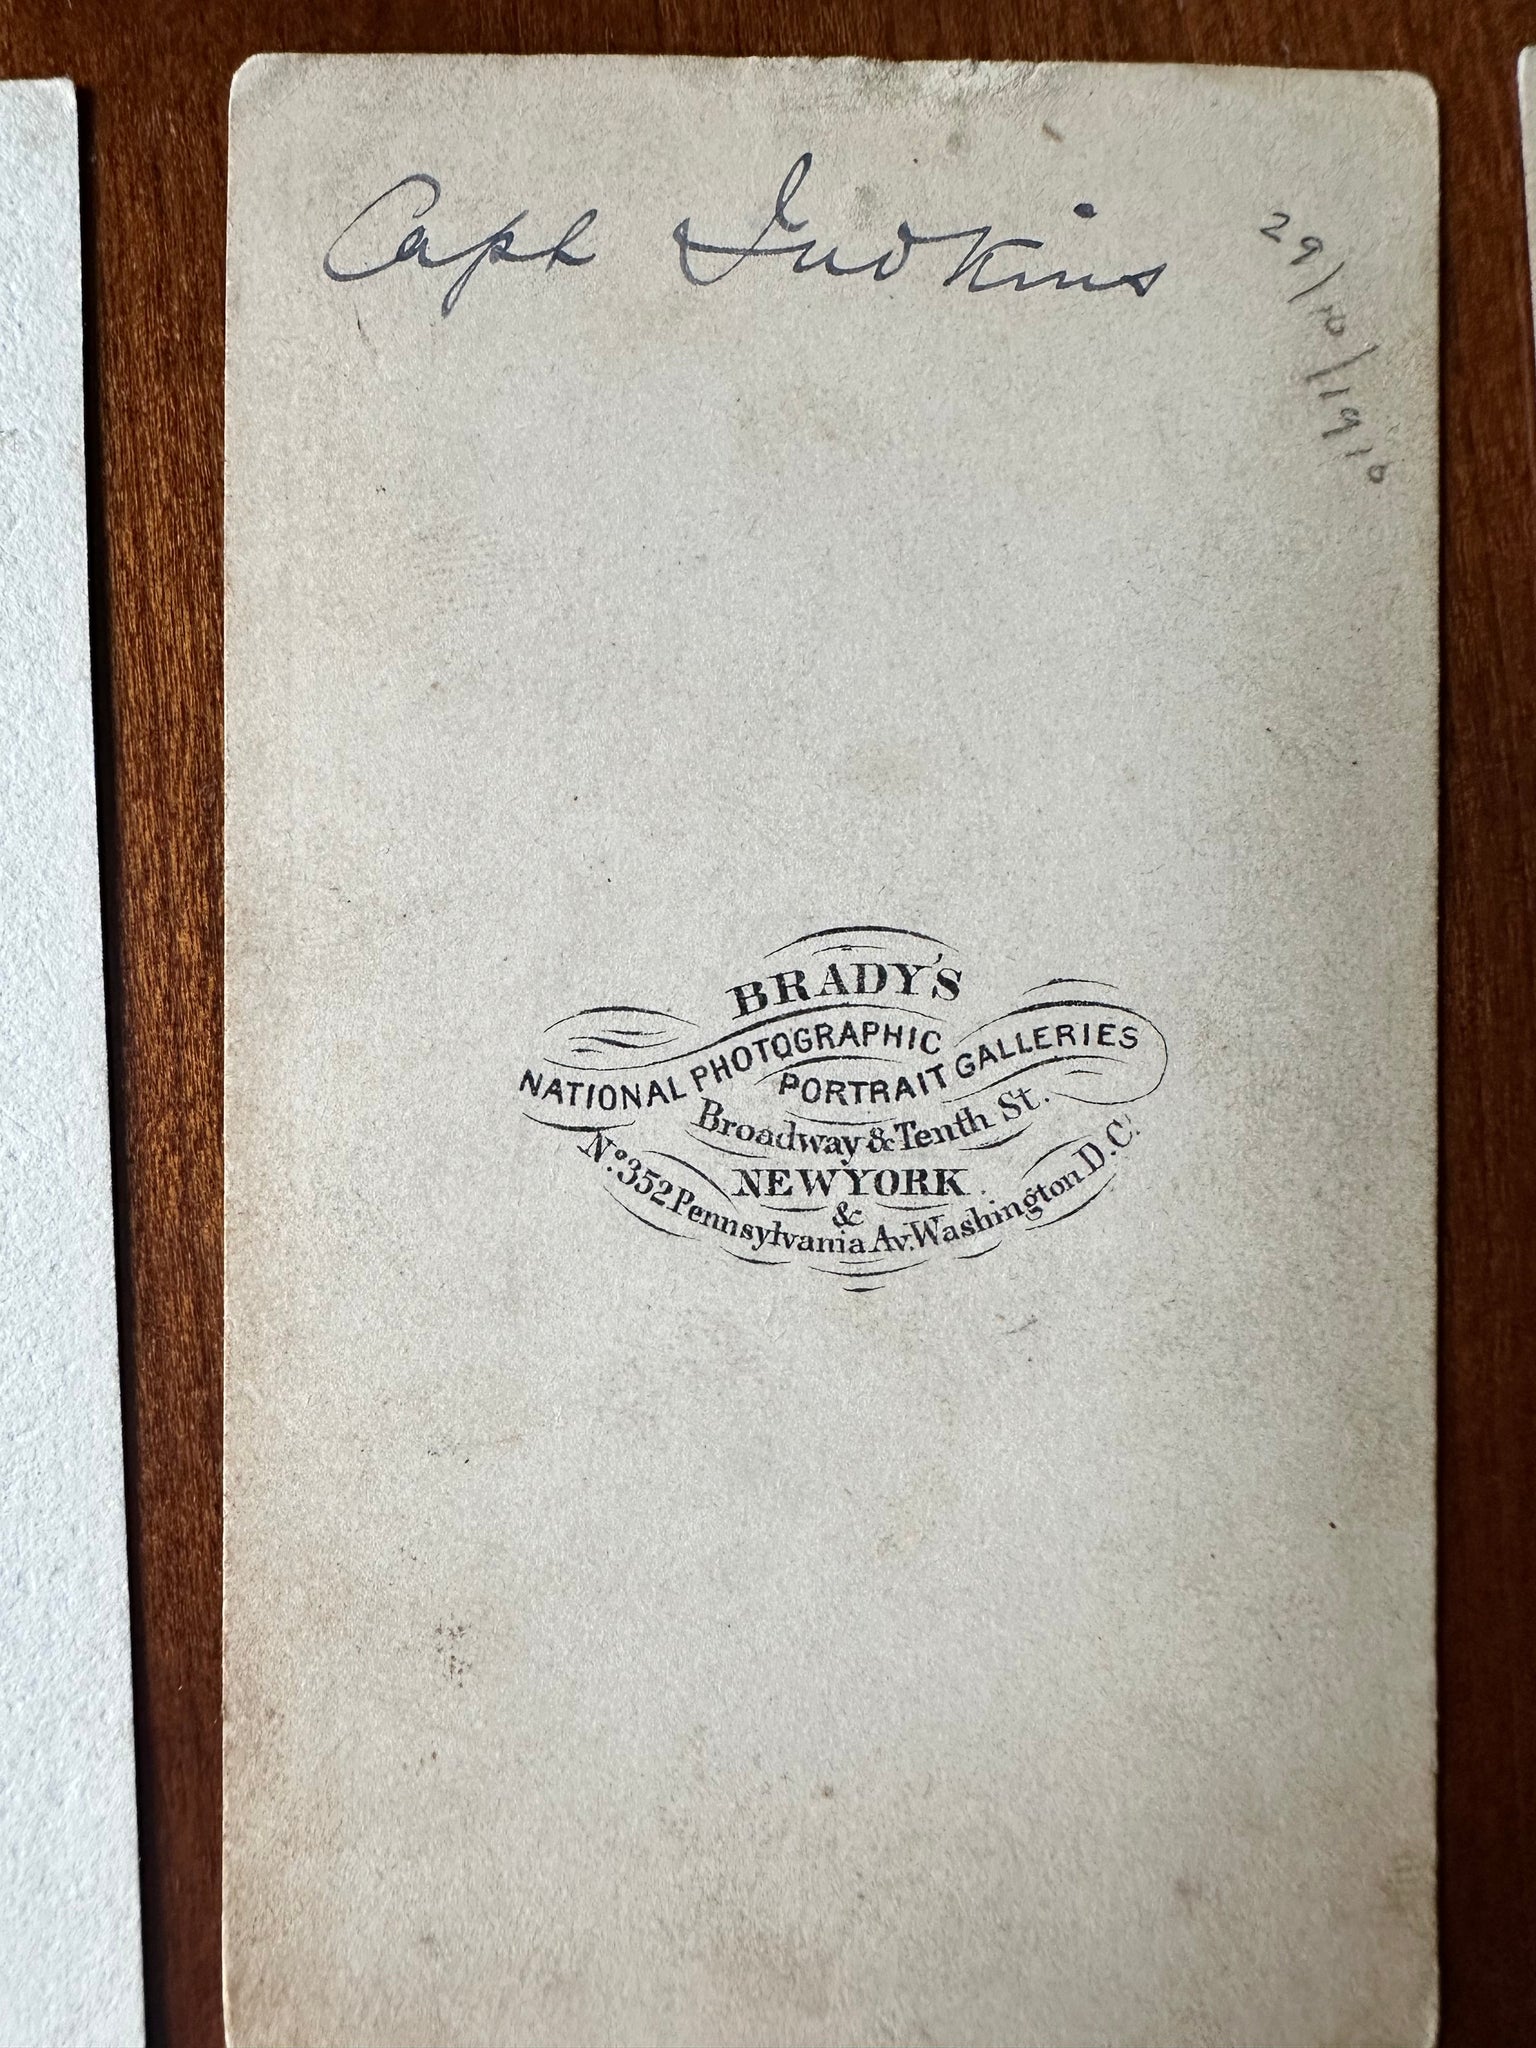 Capt Judkins
29/10/1910
BRADY'S
NATIONAL PHOTOGRAPHIC
PORTRAIT GALLERIES
Broadway & Tenth St.
NEW YORK
&
No. 352 Pennsylvania Av. Washington D.C.